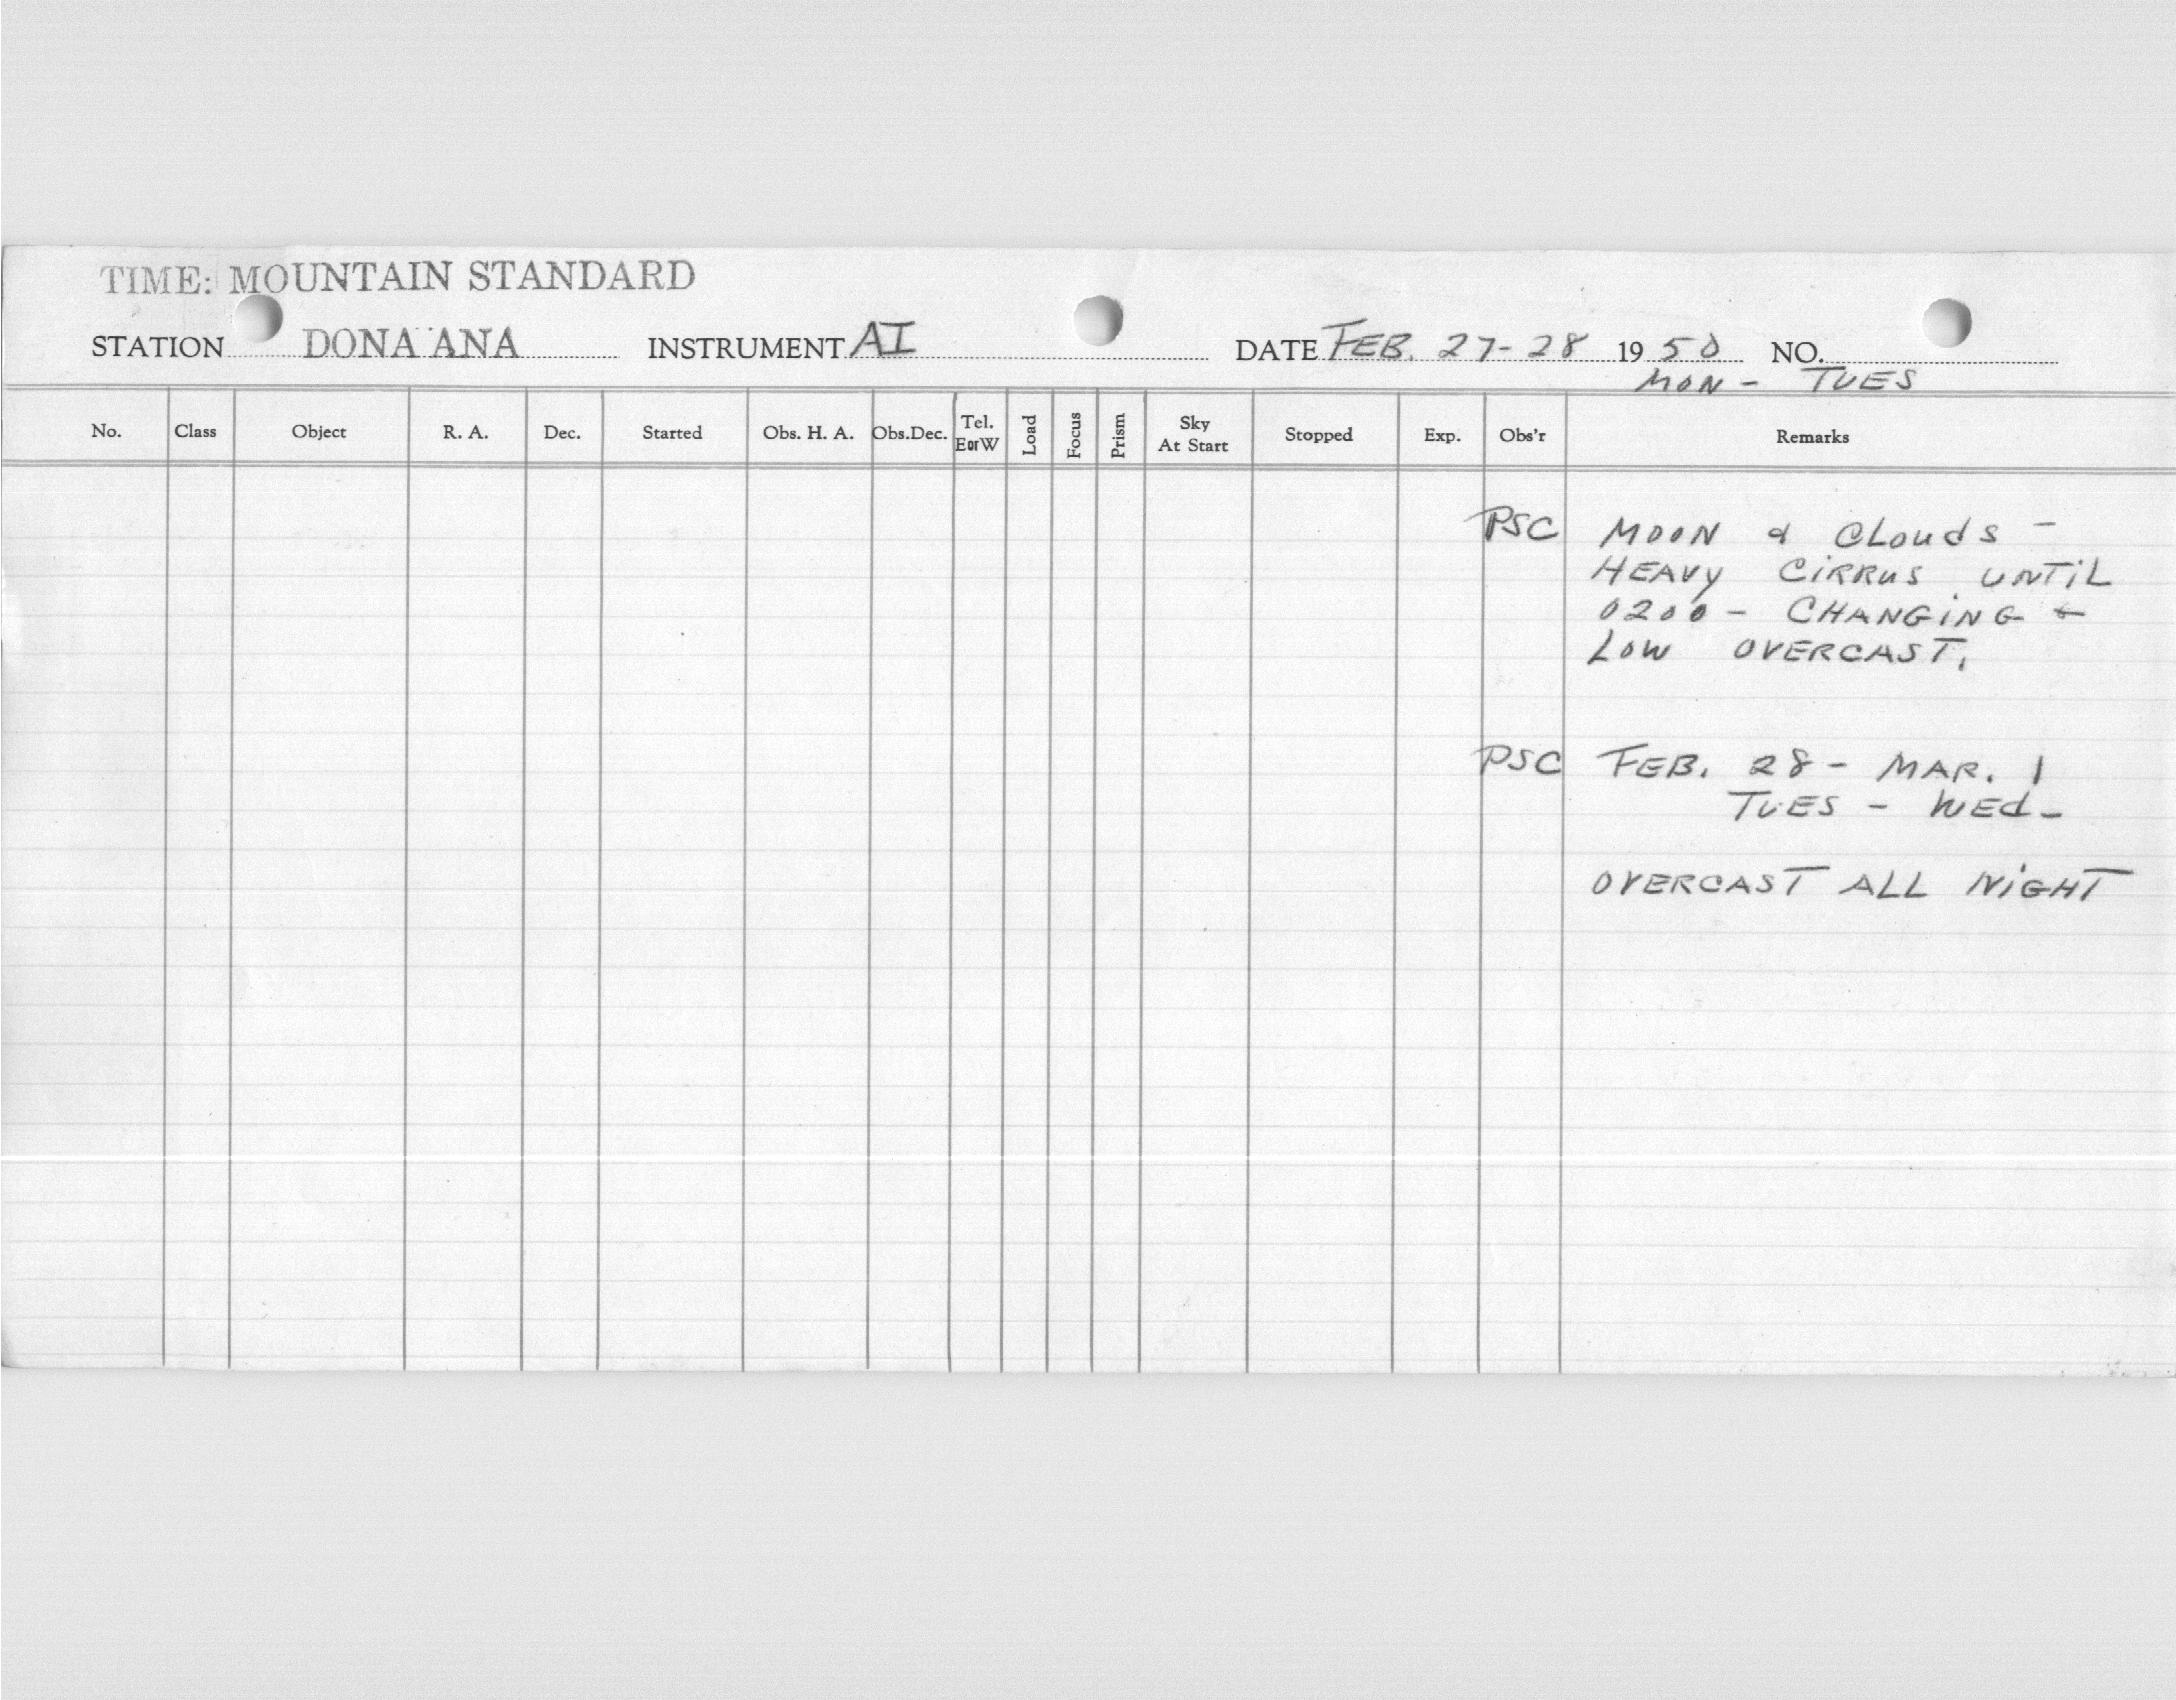 TIME: MOUNTAIN STANDARD
STATION DONA ANA INSTRUMENT AI DATE FEB. 27-28 1950 NO.
MON - TUES
No. Class Object R. A. Dec. Started Obs. H. A. Obs.Dec. Tel. E or W Load Focus Prism Sky At Start Stopped Exp. Obs'r Remarks
PSC MOON & CLOUDS -
HEAVY CIRRUS UNTIL
0200 - CHANGING
LOW OVERCAST.
PSC FEB. 28 - MAR. 1
TUES - WED-
OVERCAST ALL NIGHT